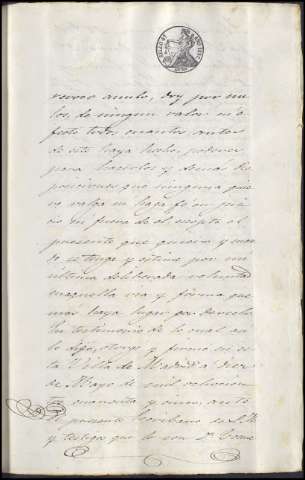 revoco anulo, doy por nu-
los, de ningun valor ni e-
fecto todos cuantos antes
de este haya hecho, poderes
para hacerlos y demas dis
posiciones que ninguna quie
ro valga ni haga fe en jui
cio ni fuera de el escepto el
presente que quiero y man
do se tenga y estime por mi
ultima deliberada voluntad
en aquella via y forma que
mas haya lugar por derecho.
En testimonio de lo cual asi
lo dijo, otorgo y firmo en es
ta Villa de Madrid a diez
de Mayo de mil ochocien
tos cuarenta y cinco, ante
el presente Escribano de S. M.
y testigos que lo son Dn